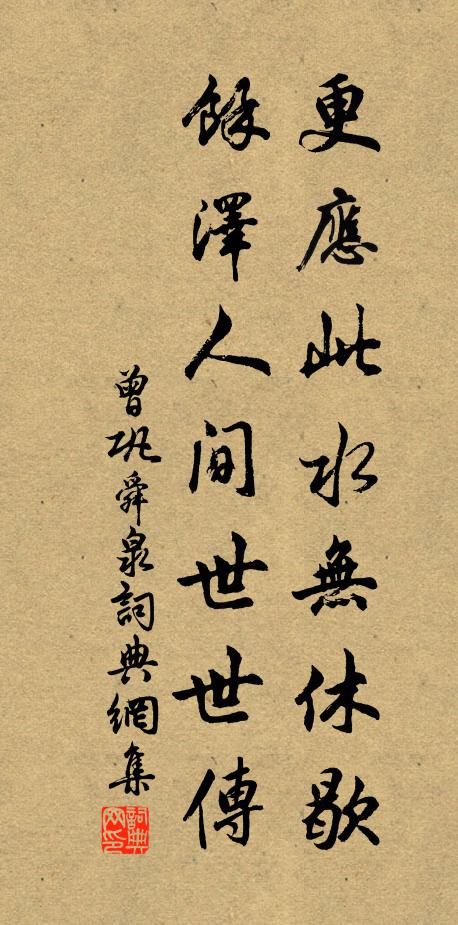 更應此水無休歇
餘澤人間世世傳
曾巩舜泉詞典網集
詞典网印